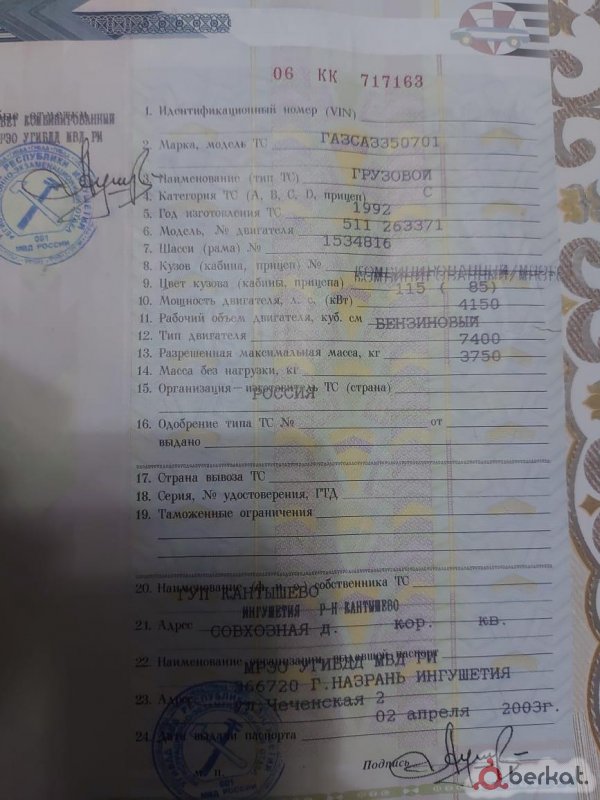 06 КК 717163
ЦВЕТ КОМБИНИРОВАННЫЙ
МРЭО УГИБДД МВД РИ
1. Идентификационный номер (VIN)
2. Марка, модель ТС ГАЗСАЗ350701
3. Наименование (тип ТС) ГРУЗОВОЙ
4. Категория ТС (A, B, C, D, прицеп) С
5. Год изготовления ТС 1992
6. Модель, № двигателя 511 263371
7. Шасси (рама) № 1534816
8. Кузов (кабина, прицеп) №
9. Цвет кузова (кабины, прицепа) КОМБИНИРОВАННЫЙ/МНОГО
10. Мощность двигателя, л. с. (кВт) 115 ( 85)
11. Рабочий объем двигателя, куб. см 4150
12. Тип двигателя БЕНЗИНОВЫЙ
13. Разрешенная максимальная масса, кг 7400
14. Масса без нагрузки, кг 3750
15. Организация—изготовитель ТС (страна)
РОССИЯ
16. Одобрение типа ТС № от
выдано
17. Страна вывоза ТС
18. Серия, № удостоверения, ГТД
19. Таможенные ограничения
20. Наименование (ф. и. о.) собственника ТС
ГУП КАНТЫШЕВО
ИНГУШЕТИЯ Р-Н КАНТЫШЕВО
21. Адрес СОВХОЗНАЯ Д. кор. кв.
22. Наименование организации, выдавшей паспорт
МРЭО УГИБДД МВД РИ
366720 Г.НАЗРАНЬ ИНГУШЕТИЯ
23. Адрес ул.Чеченская 2
24. Дата выдачи паспорта 02 апреля 2003г.
Подпись
м. п.
091
МВД РОССИИ
091
berkat.